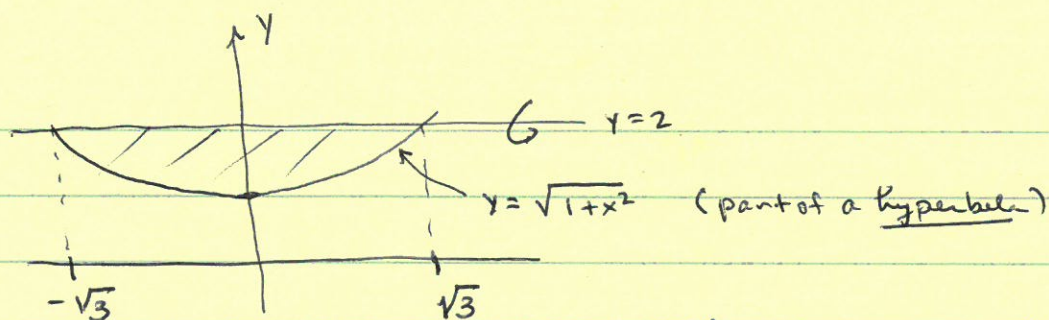 y
y = 2
y = √(1+x²) (part of a hyperbola)
-√3 √3